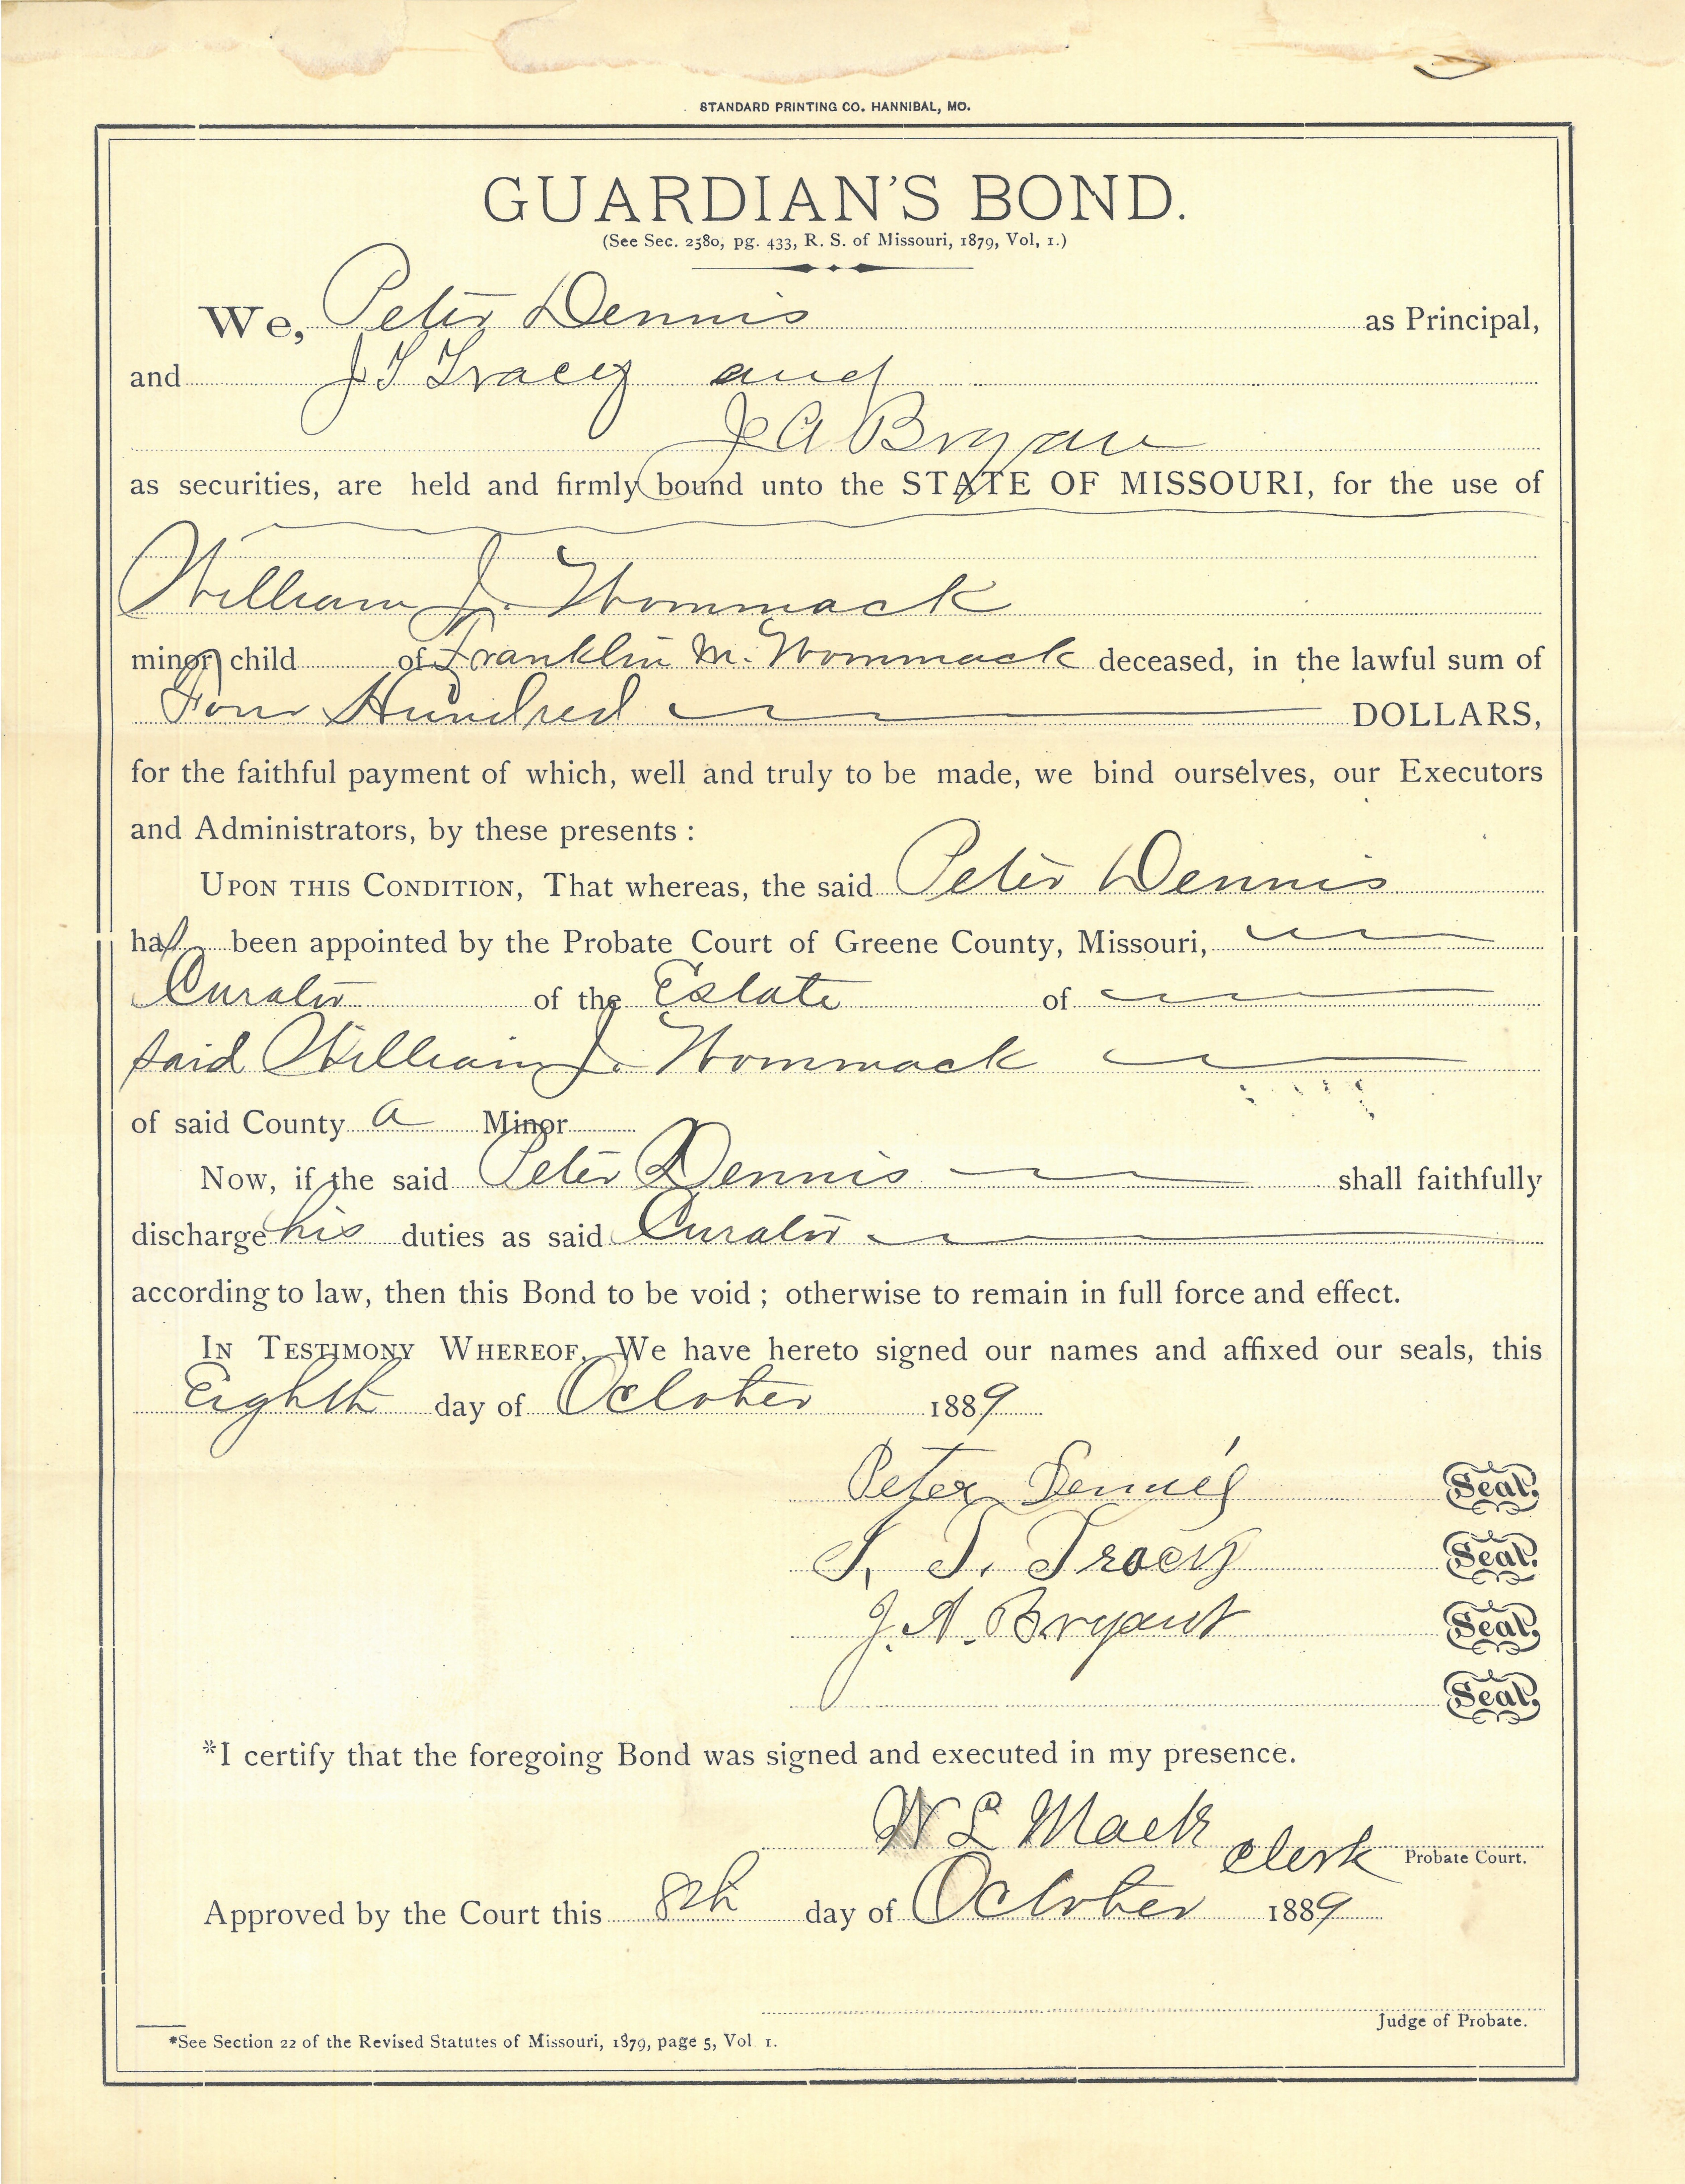 STANDARD PRINTING CO. HANNIBAL, MO.
GUARDIAN'S BOND.
(See Sec. 2580, pg. 433, R. S. of Missouri, 1879, Vol, 1.)
We, Peter Dennis as Principal,
and J T Tracey and
J A Bryan
as securities, are held and firmly bound unto the STATE OF MISSOURI, for the use of
William J. Wommack
minor child of Franklin M. Wommack deceased, in the lawful sum of
Four Hundred DOLLARS,
for the faithful payment of which, well and truly to be made, we bind ourselves, our Executors
and Administrators, by these presents :
UPON THIS CONDITION, That whereas, the said Peter Dennis
has been appointed by the Probate Court of Greene County, Missouri,
Curator of the Estate of
said William J. Wommack
of said County a Minor
Now, if the said Peter Dennis shall faithfully
discharge his duties as said Curator
according to law, then this Bond to be void ; otherwise to remain in full force and effect.
IN TESTIMONY WHEREOF, We have hereto signed our names and affixed our seals, this
Eighth day of October 1889
Peter Dennis Seal.
J. T. Tracy Seal.
J. A. Bryant Seal.
Seal.
*I certify that the foregoing Bond was signed and executed in my presence.
W L Mack Clerk Probate Court.
Approved by the Court this 8th day of October 1889
Judge of Probate.
*See Section 22 of the Revised Statutes of Missouri, 1879, page 5, Vol 1.